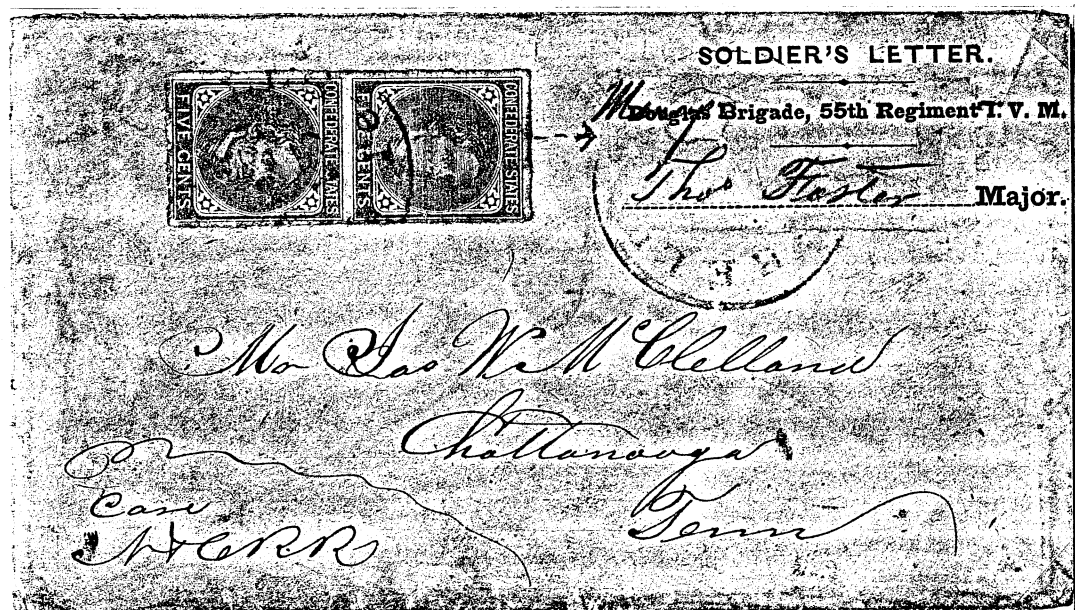 SOLDIER'S LETTER.
Brigade, 55th Regiment T. V. M.
Thos Foster Major.
CONFEDERATE STATES
FIVE CENTS
CONFEDERATE STATES
CENTS
Mr Jas W McClelland
Chattanooga
Tenn
Care
N & C R R